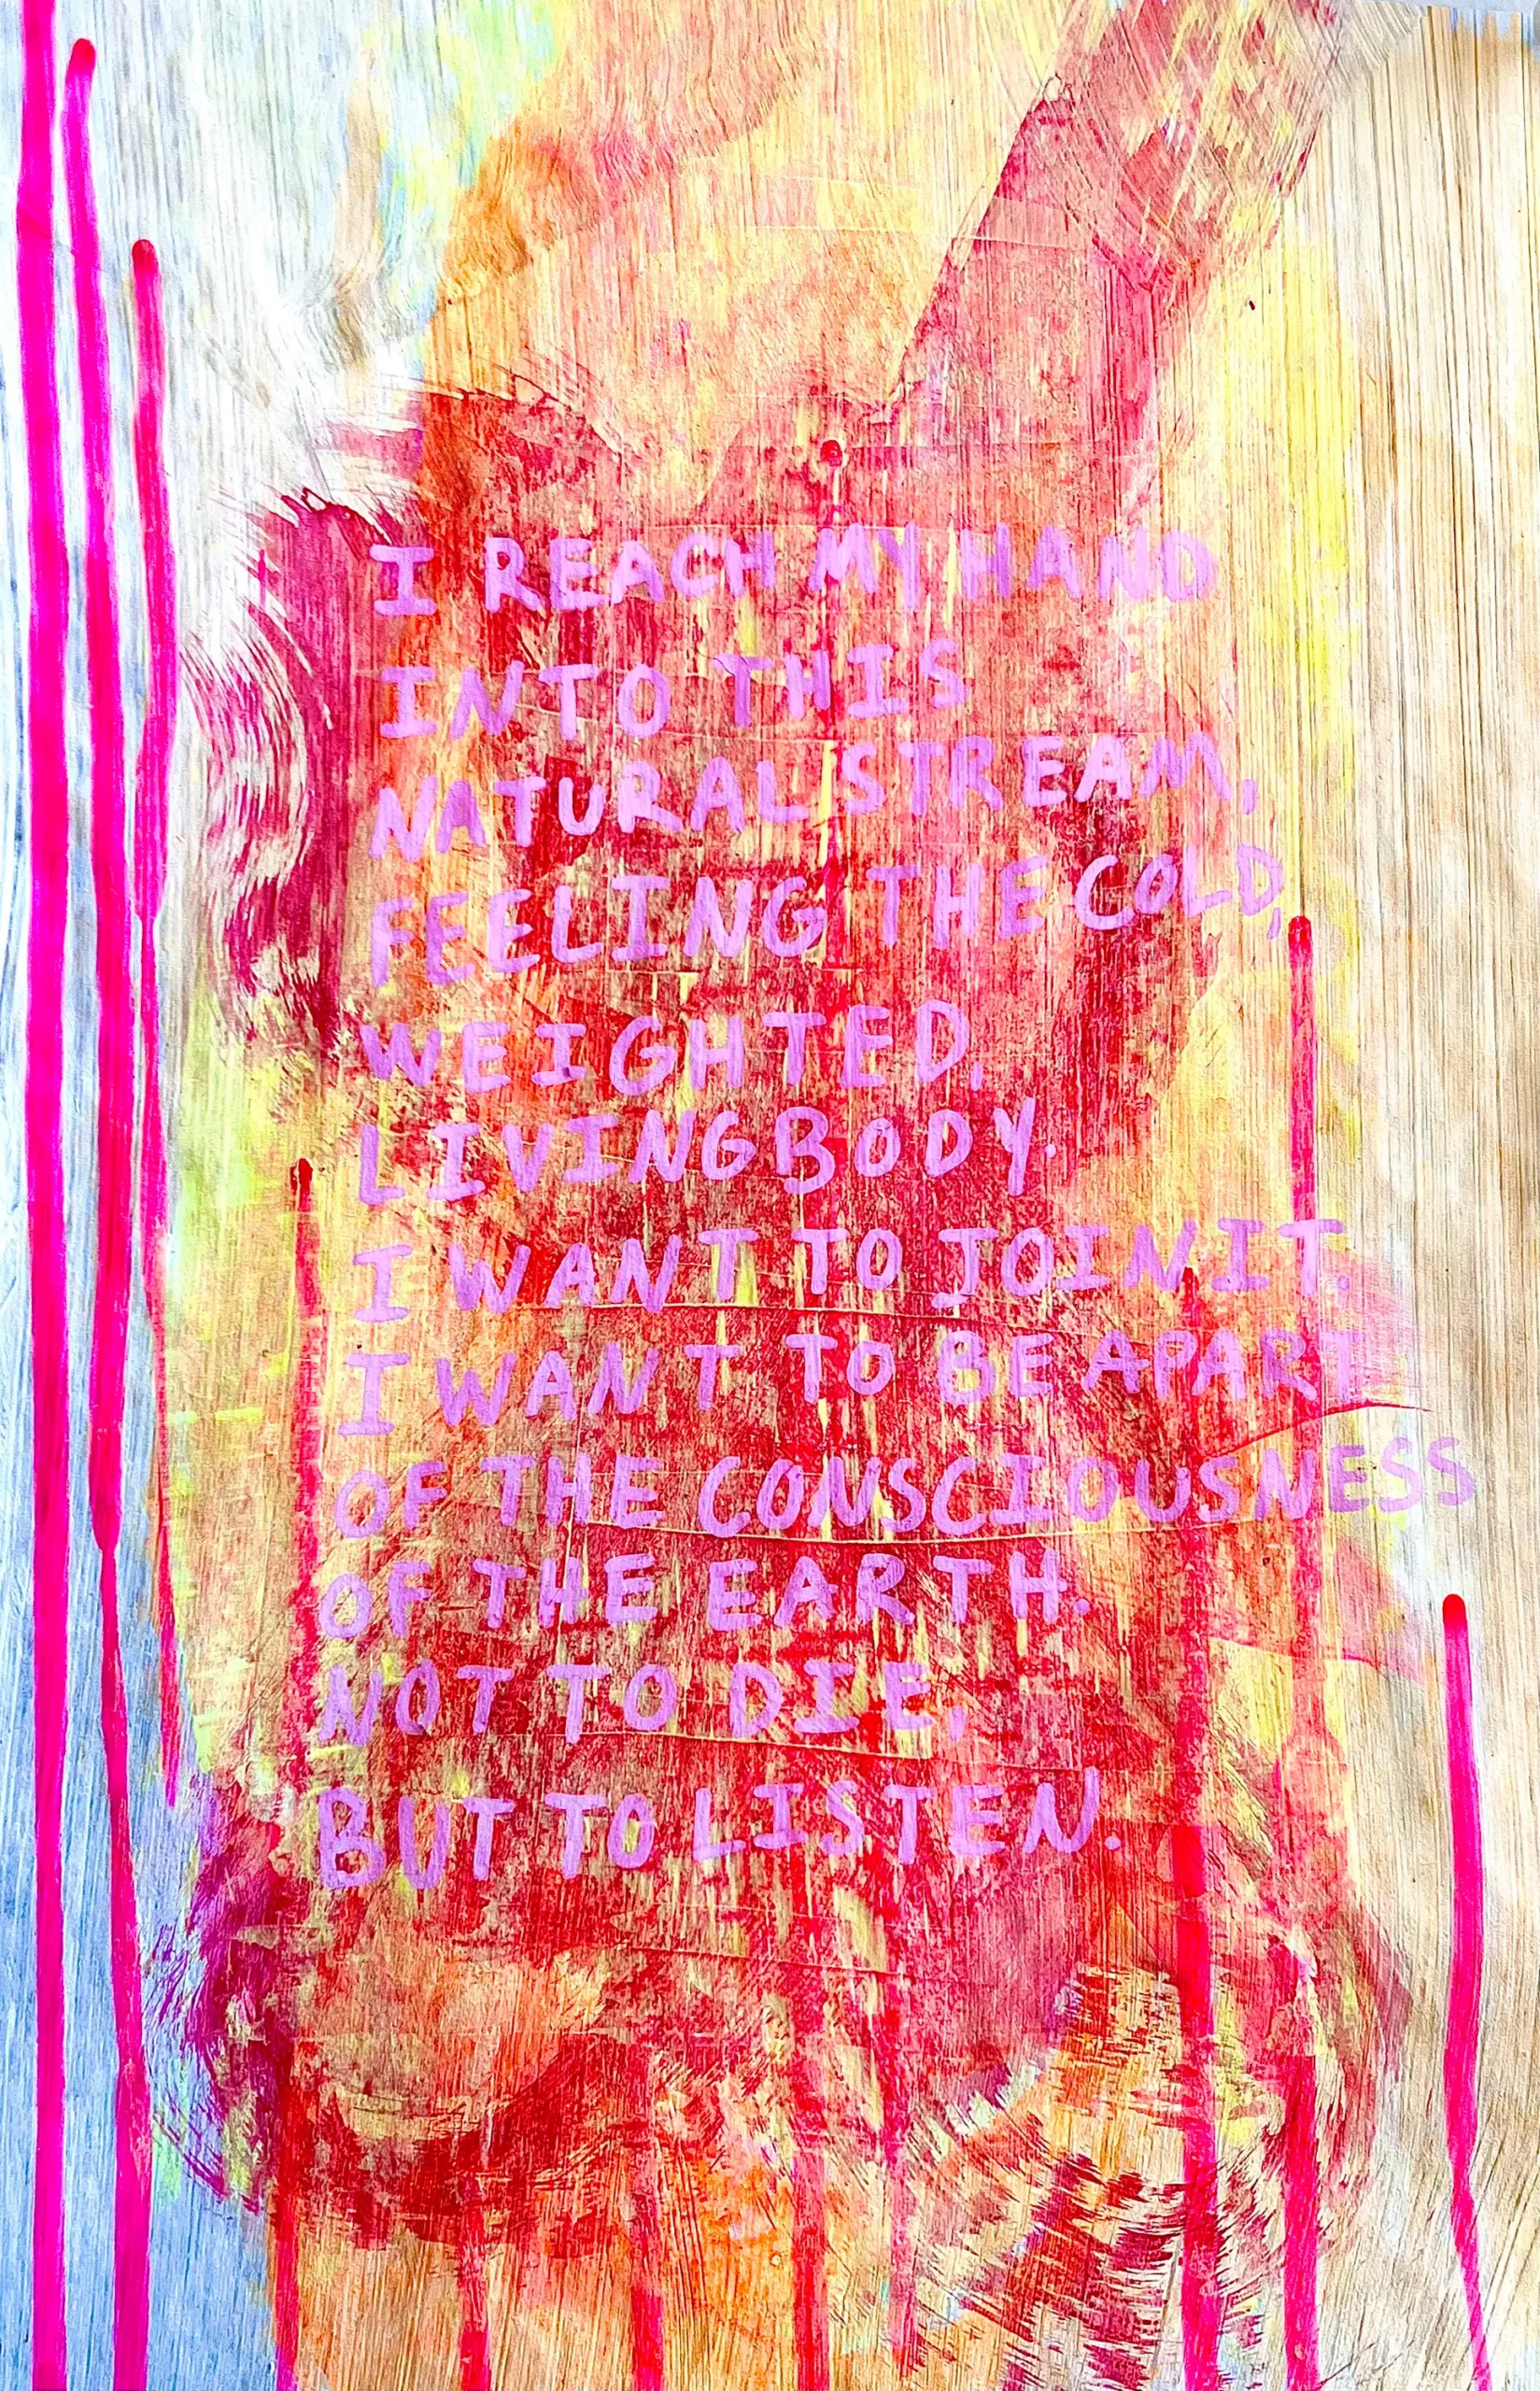 I REACH MY HAND
INTO THIS
NATURAL STREAM,
FEELING THE COLD,
WEIGHTED,
LIVING BODY.
I WANT TO JOIN IT.
I WANT TO BE APART
OF THE CONSCIOUSNESS
OF THE EARTH.
NOT TO DIE,
BUT TO LISTEN.